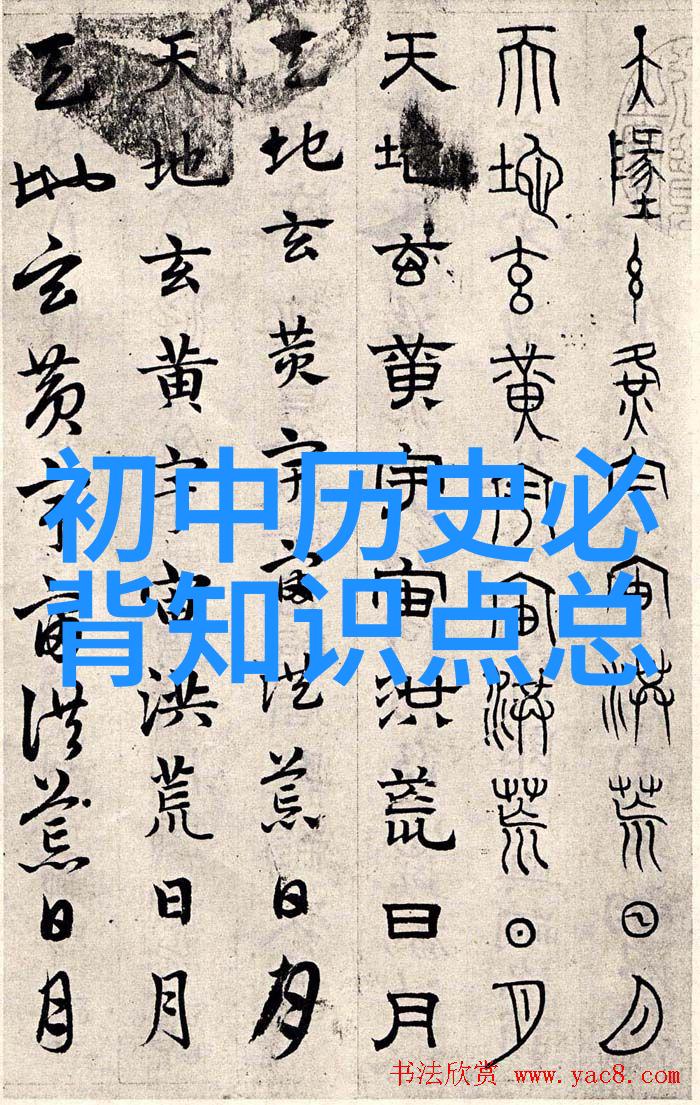 天墬玄黄宇宙洪荒日月
天地玄黄宇宙洪荒日月
天地玄黄宇宙洪荒日月
天地玄黄宇宙洪荒日月
天地玄黄宇宙洪荒日月
天地玄黄宇宙洪荒日月
初中历史必
背知识点总
书法欣赏 www.yac8.com